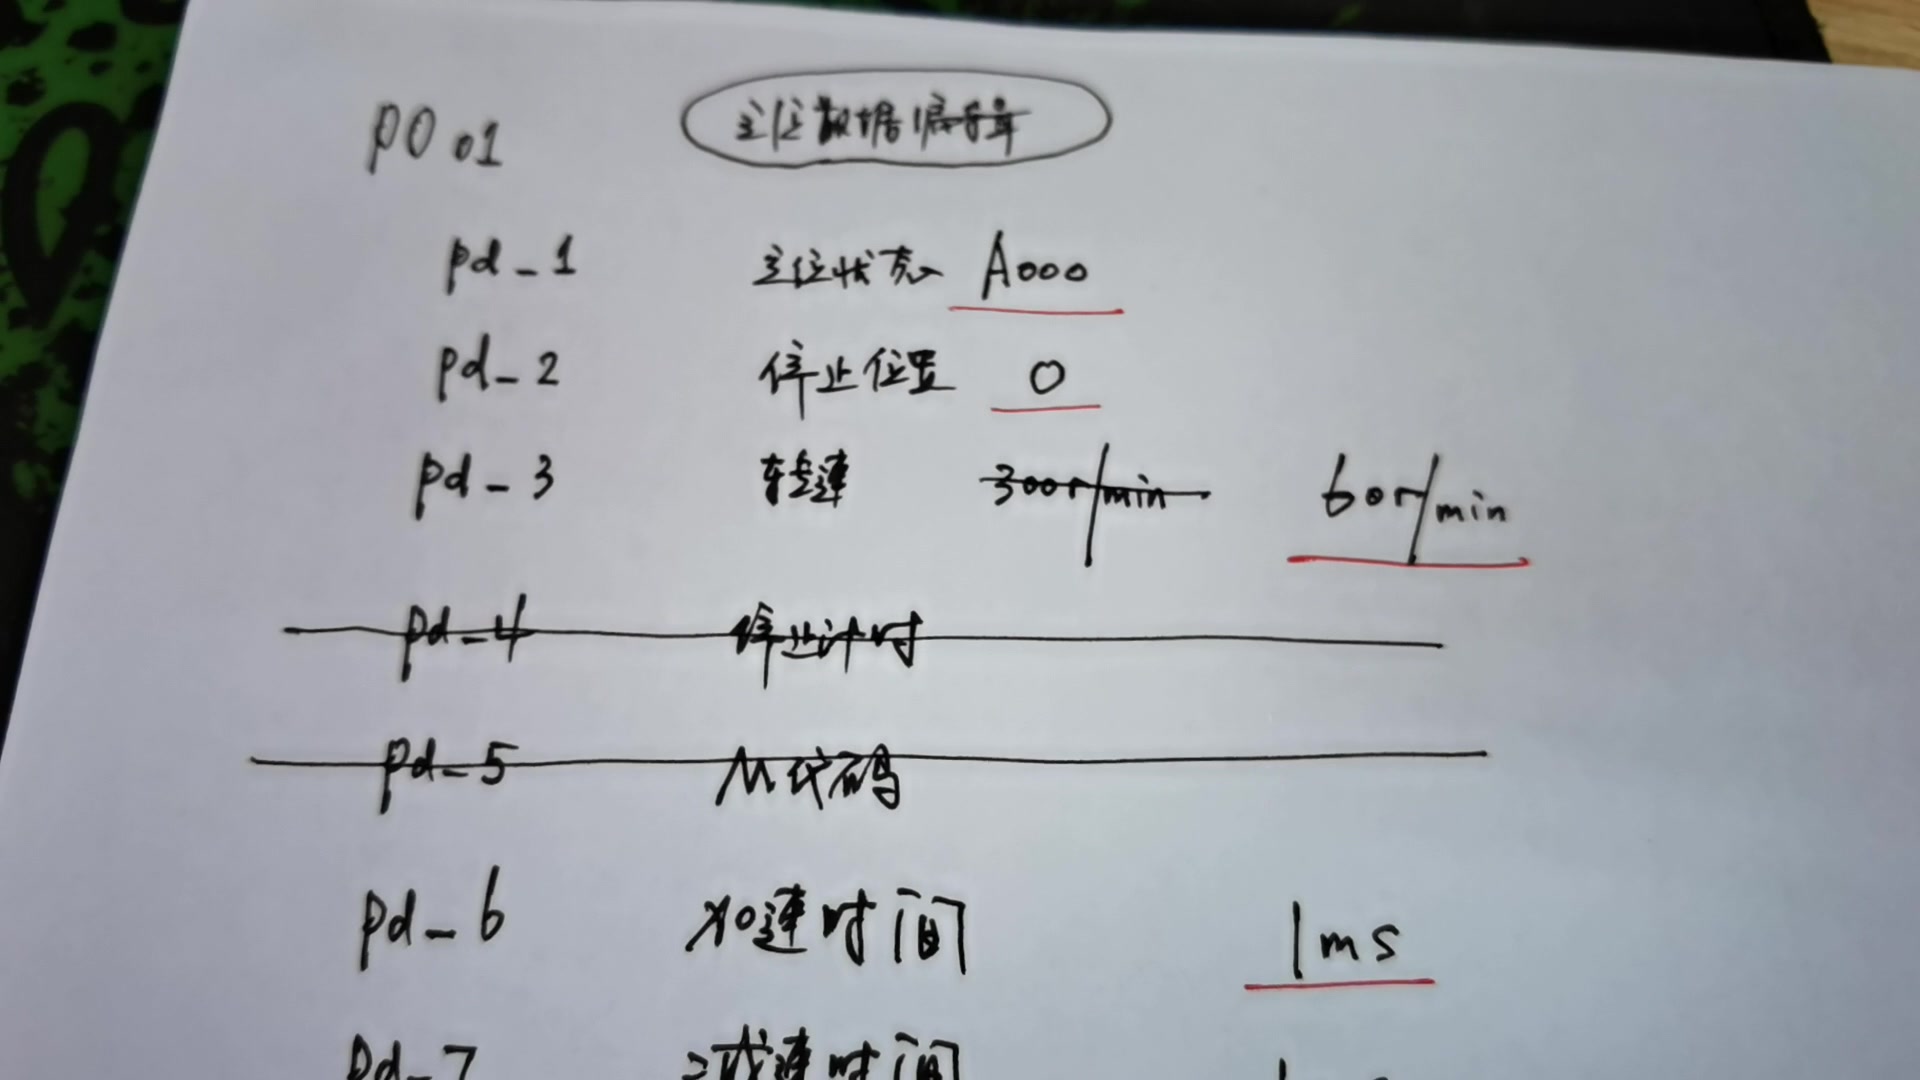 PO 01 定位数据编辑
Pd-1 定位状态 A000
Pd-2 停止位置 0
Pd-3 转速 300r/min 60r/min
Pd-4 停止计时
Pd-5 M代码
Pd-6 加速时间 1ms
Pd-7 减速时间